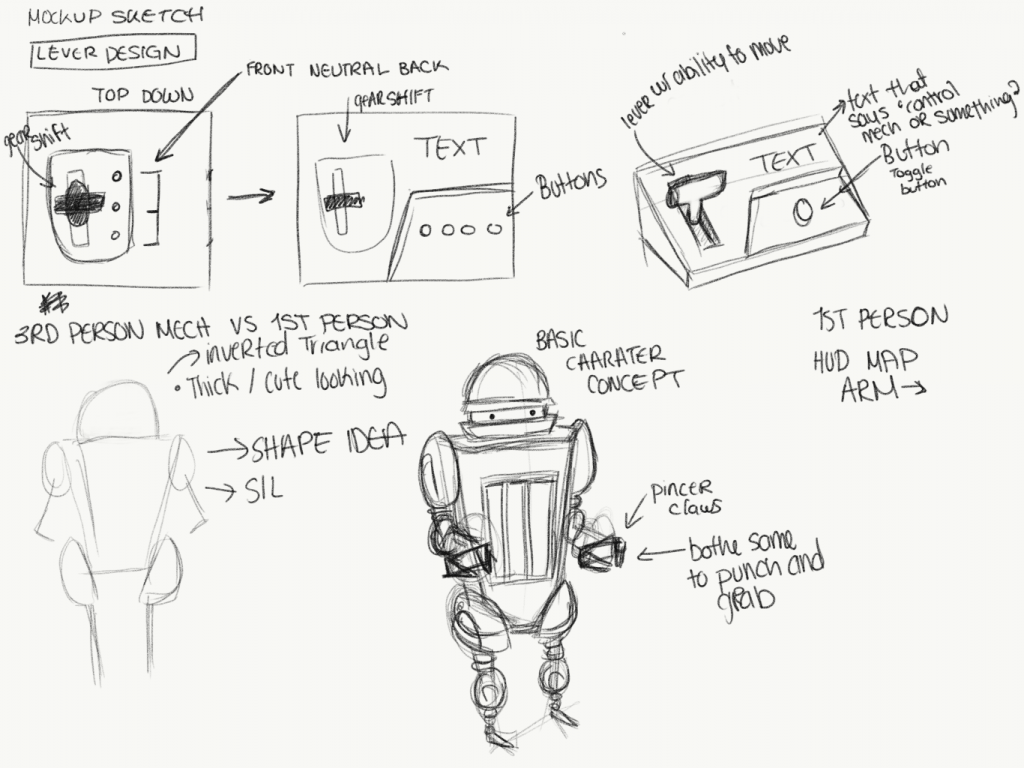 MOCKUP SKETCH
LEVER DESIGN
TOP DOWN
FRONT NEUTRAL BACK
gear
shift
gEARSHIFT
TEXT
Buttons
lever w/ ability to move
TEXT
text that
says "control
mech or something?
Button
Toggle
button
3RD PERSON MECH VS 1ST PERSON
inverted Triangle
• Thick / cute looking
SHAPE IDEA
SIL
BASIC
CHARATER
CONCEPT
pincer
claws
bothe some
to punch and
grab
1ST PERSON
HUD MAP
ARM